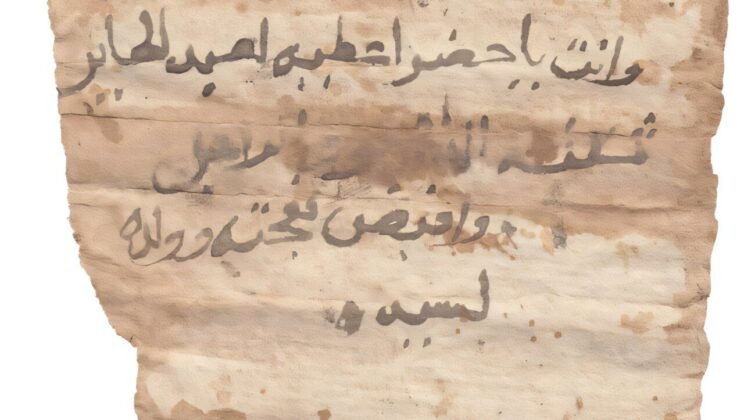 وانت ياخضر اعطيه لعبد الجابر
ثلثه
واقبض نعجته وولده
لسيده